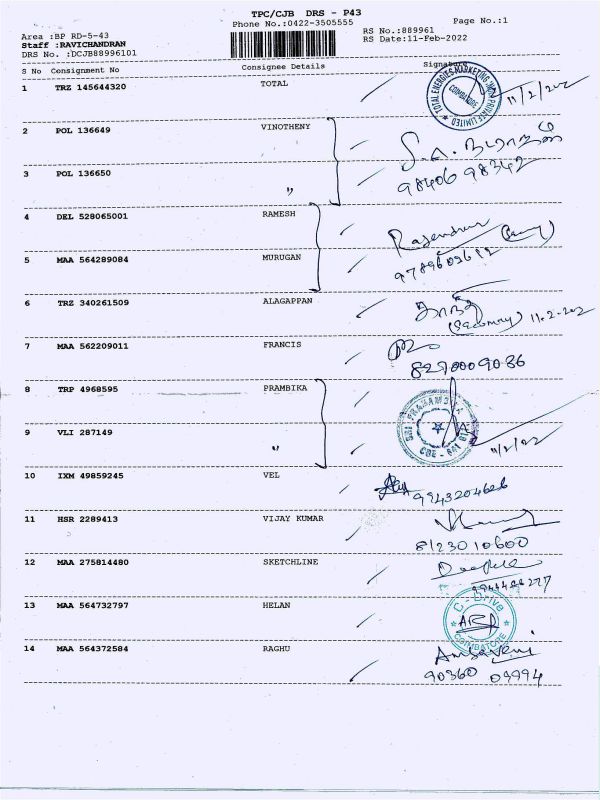 TPC/CJB DRS - P43
Phone No.:0422-3505555
Page No.:1
RS No.:889961
Area :BP RD-5-43
RS Date:11-Feb-2022
Staff :RAVICHANDRAN
DRS No. :DCJB88996101
S No Consignment No Consignee Details Signature
1 TRZ 145644320 TOTAL
TOTAL ENERGIES MARKETING INDIA PRIVATE LIMITED
COIMBATORE
11/2/202
2 POL 136649 VINOTHENY
3 POL 136650 "
98406 98342
4 DEL 528065001 RAMESH Rajendran
5 MAA 564289084 MURUGAN 9789602612
6 TRZ 340261509 ALAGAPPAN
(Security) 11-2-202
7 MAA 562209011 FRANCIS
8290009086
8 TRP 4968595 PRAMBIKA
9 VLI 287149 "
11/2/22
10 IXM 49859245 VEL 9943204626
11 HSR 2289413 VIJAY KUMAR
8123010600
12 MAA 275814480 SKETCHLINE Deepika
13 MAA 564732797 HELAN
C - Drive
COIMBATORE
14 MAA 564372584 RAGHU Ambaveni
90360 09994